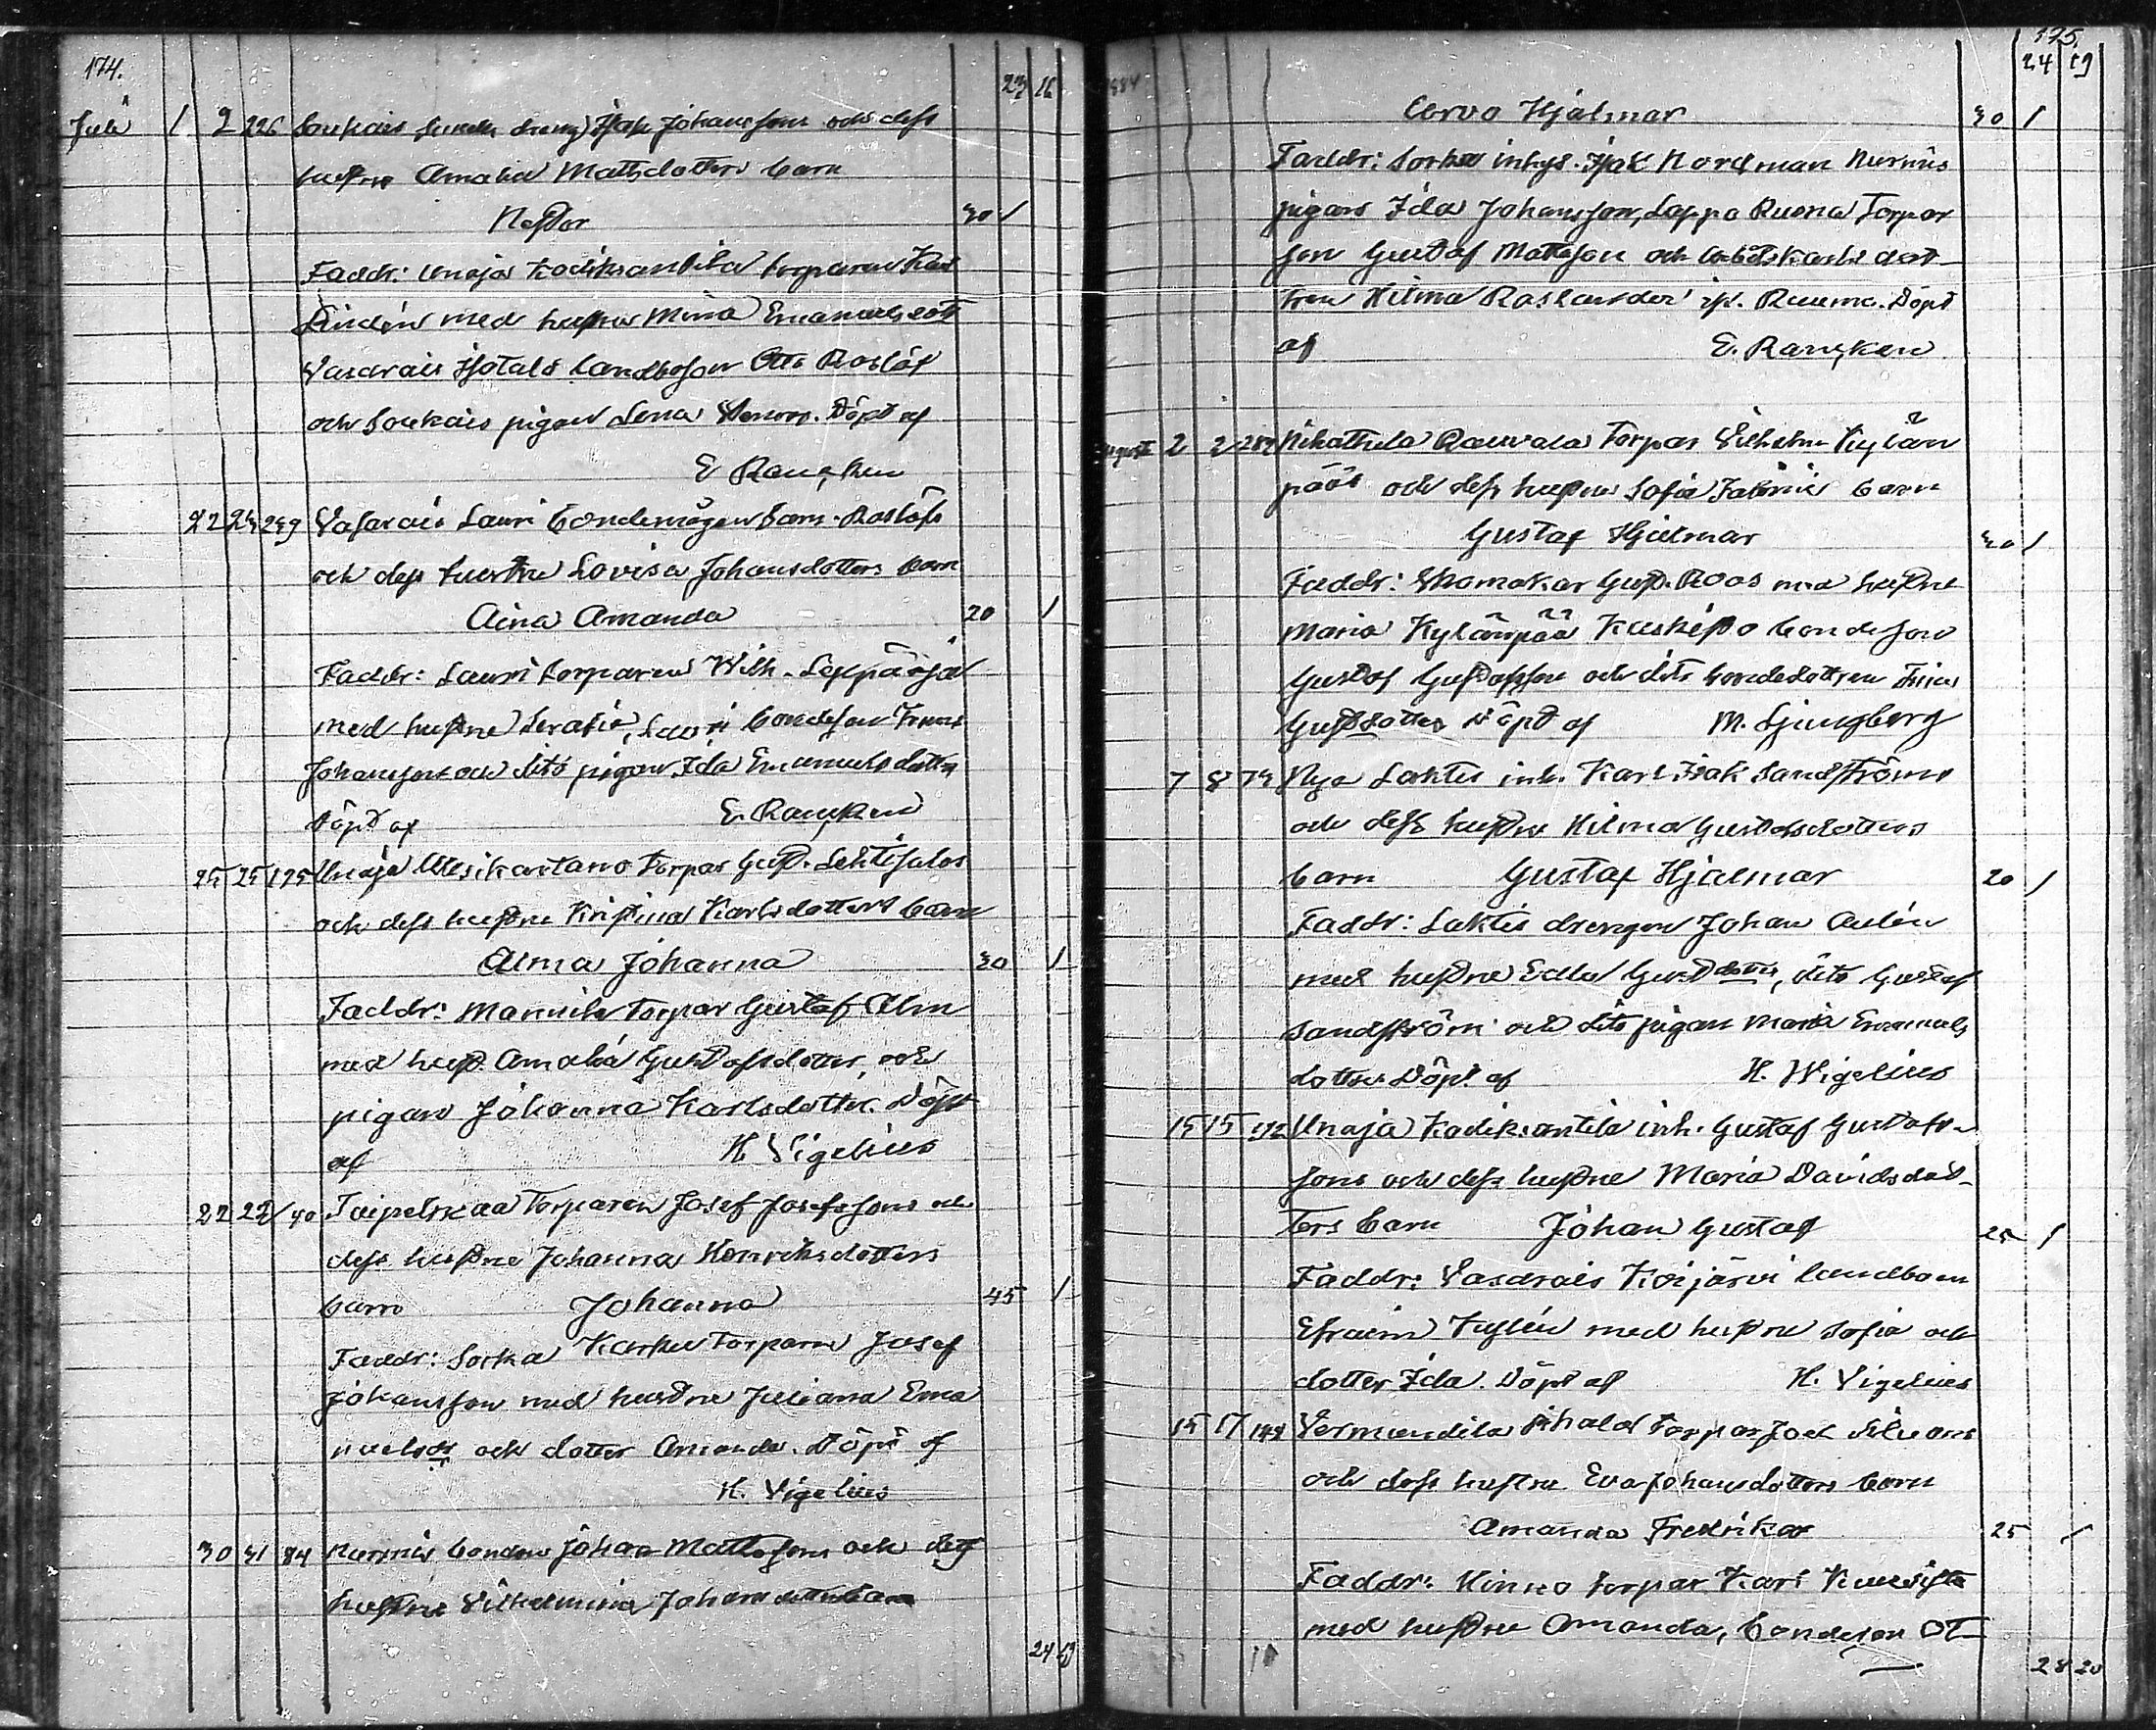 174.
23 16
Juli 1 2 226 Soukais drang Isak Johanssons och dess
hustru Amalia Mattsdotters barn
Nestor 30 1
Faddr: Unaja Kodiksantila torparen Karl
Lindén med hustru Mina Emanuelsdott
Vasarais landbosson Otto Roslöf
och Soukais pigan Lena Döpt af
E Rancken
22 24 249 Vasarais Lauri bondemågen Roslöfs
och dess hustru Lovisa Johansdotters barn
Aina Amanda 20 1
Faddr: Lauri torparen Wilh. Leppäoja
med hustru Serafia, Lauri bondeson Frans
Johansson och dito pigan Ida Emanuelsdotter
Döpt af E. Rancken
25 25 125 Unaja torpar Gust. Lehtisalos
och dess hustru Kristina Karlsdotters barn
Alma Johanna 30 1
Faddr: Mannila torpar Gustaf Alm
med hust. Amalia Gustafsdotter, och
pigan Johanna Karlsdotter. Döpt
af H Vigelius
22 22 40 Taipelskaa torparen Josef Josefssons och
dess hustru Johanna Henriksdotters
barn Johanna 45 1
Faddr: Sorka Karku torparn Josef
Johansson med hustru Juliana Ema
nuelsdr och dotter Amanda. Döpt af
H. Vigelius
30 31 84 Nurmis bonden Johan Mattssons och dess
hustru Vilhelmina Johansdotters barn
24 19
1884
175.
24 19
Arvo Hjalmar 30 1
Faddr: Sorka inhys. Isak Nordman Nurmis
pigan Ida Johansson, Lappo Ruona Torpar
son Gustaf Mattsson och arbetskarls dot
tren Hilma Roslander ifr. Rauma. Döpt
af E. Rancken
Augusti 2 2 Nihattula Rauvala torpar Vilhelm Kylän
pääs och dess hustru Sofia barn
Gustaf Hjalmar 30 1
Faddr: Skomakar Gust. Roos med hustru
Maria Kylänpää bondeson
Gustaf Gustafsson och dito bondedottren
Gustdotter Döpt af M. Ljungberg
7 8 73 Nya Lahtis inh. Karl Isak Sandströms
och dess hustru Hilma Gustafsdotters
barn Gustaf Hjalmar 20 1
Faddr: Lahtis drengen Johan Aulén
med hustru Edla Gustdotter, dito Gustaf
Sandström och dito pigan Maria Emanuels
dotter Döpt af H. Wigelius
15 15 192 Unaja Kodiksantila inh. Gustaf Gustafs-
sons och dess hustru Maria Davidsdot-
ters barn Johan Gustaf 25 1
Faddr: Vasarais Koijärvi landboen
Efraim med hustru Sofia och
dotter Ida. Döpt af H. Vigelius
15 17 144 Vermundila torpar Joel
och dess hustru Eva Johansdotters barn
Amanda Fredrika 25 1
Faddr: Hinno torpar Karl
med hustru Amanda, bondeson Ot-
28 20